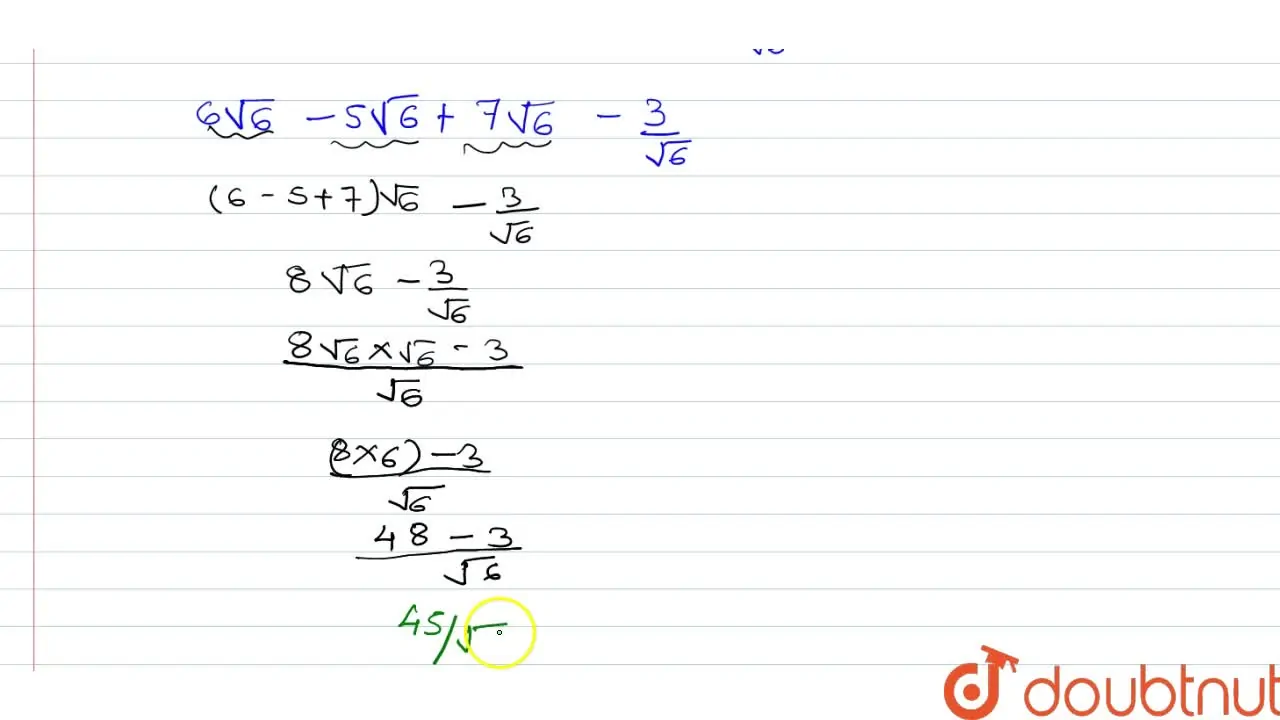 6√6 - 5√6 + 7√6 - 3/√6
(6 - 5 + 7)√6 - 3/√6
8√6 - 3/√6
8√6 × √6 - 3
√6
(8×6) - 3
√6
48 - 3
√6
45/√
doubtnut